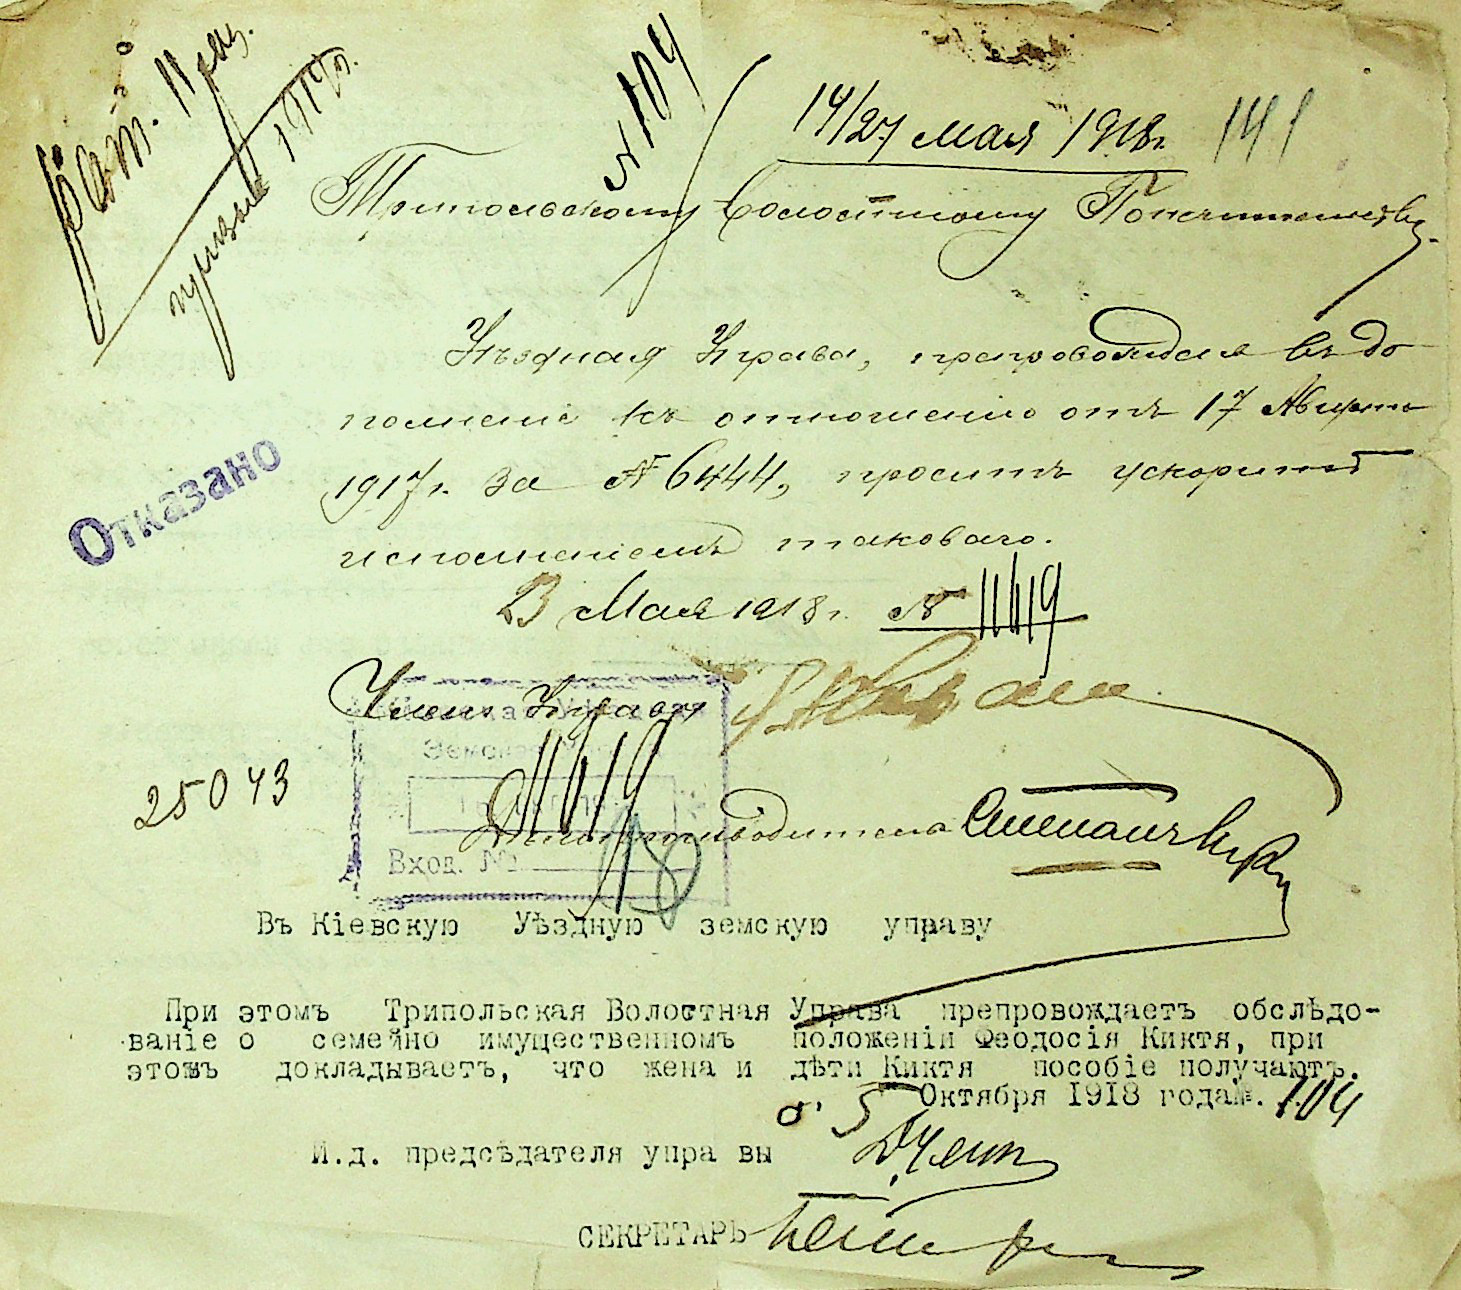 № 104
14/27 мая 1918г. 141
1917г.
Трипольскому Волостному Попечительству.
Уѣздная Управа, препровождая въ до
полненіе къ отношенію отъ 17 Августа
1917г. за № 6444, проситъ ускорить
исполненіемъ таковаго.
Отказано
23 Мая 1918г. № 11619
Членъ Управы
11619
25043
Дѣлопроизводитель
Вход. №
Въ Кіевскую Уѣздную земскую управу
При этомъ Трипольская Волостная Управа препровождаетъ обслѣдо-
ваніе о семейно имущественномъ положеніи Феодосія Киктя, при
этомъ докладываетъ, что жена и дѣти Киктя пособіе получаютъ.
5 Октября 1918 года №. 104
И.д. предсѣдателя упра вы
СЕКРЕТАРЬ